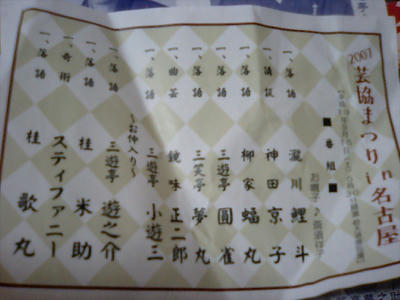 2007
芸協まつり in 名古屋
■ 番組 ■
お囃子♪
一、落語 瀧川鯉斗
一、講談 神田京子
一、落語 柳家蝠丸
一、落語 三笑亭夢丸
一、落語 三遊亭圓雀
一、曲芸 鏡味正二郎
一、落語 三遊亭小遊三
～お仲入り～
一、落語 三遊亭遊之介
一、落語 桂米助
一、奇術 スティファニー
一、落語 桂歌丸